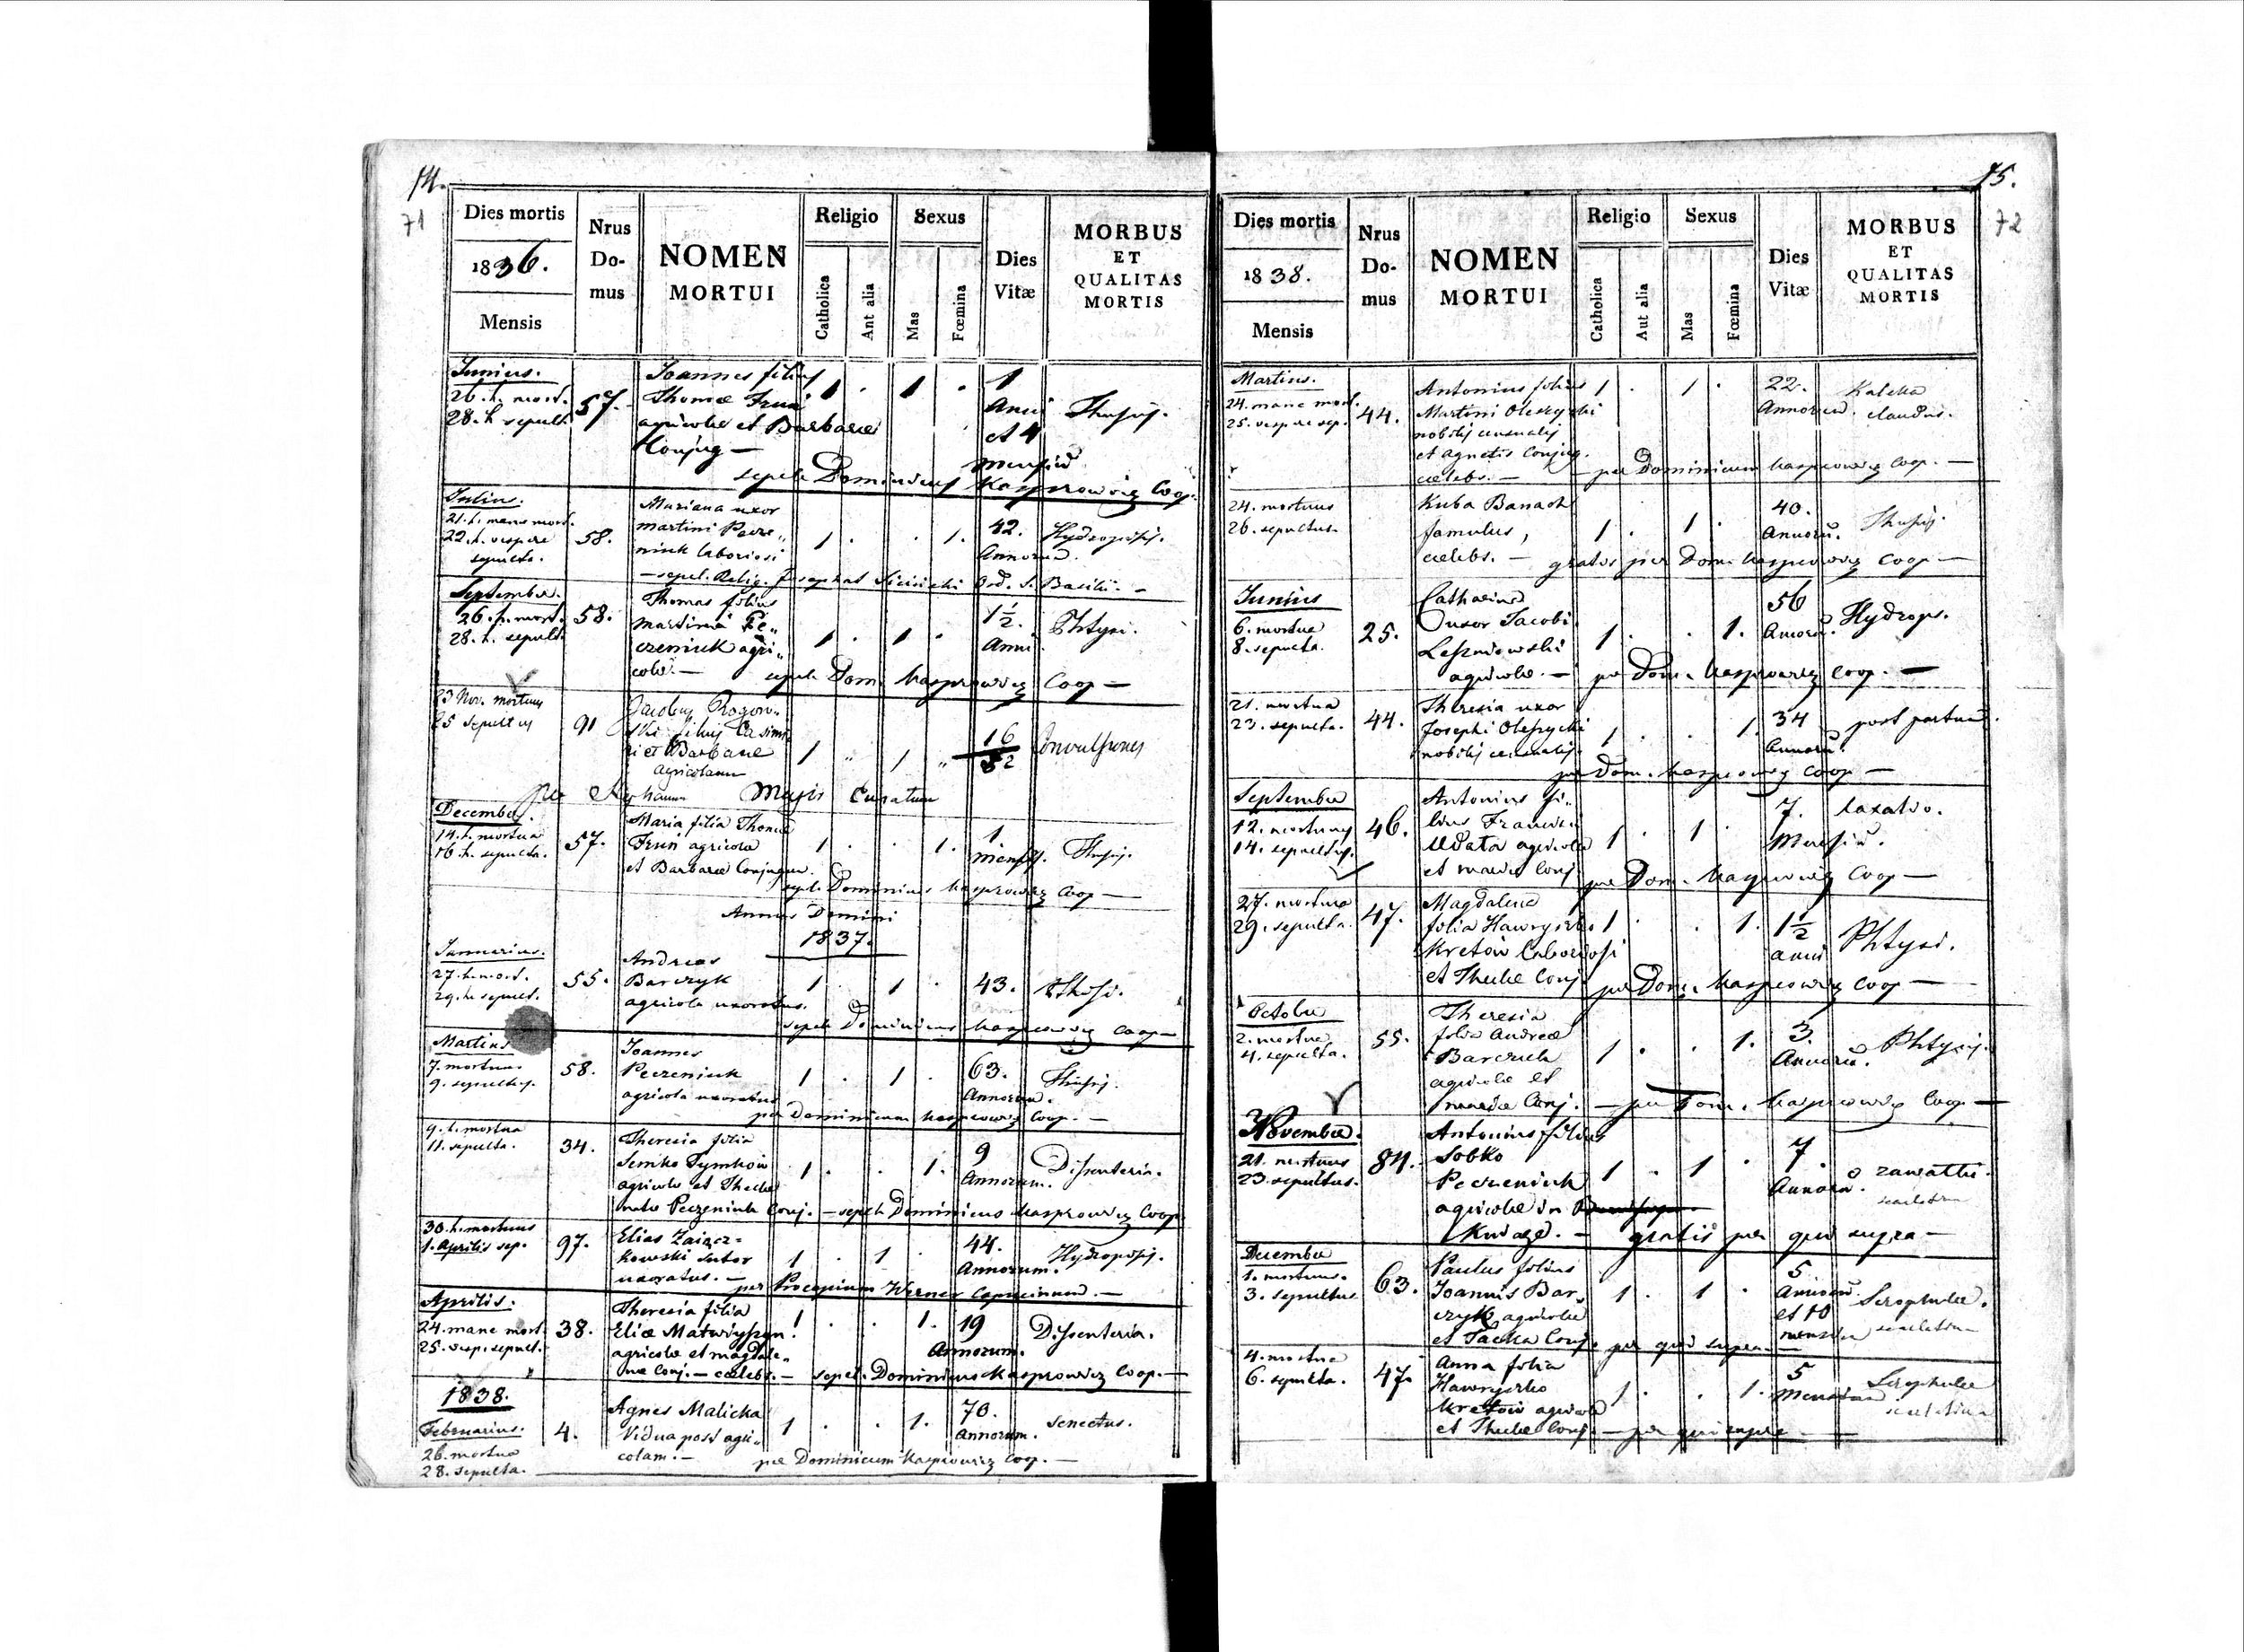 14.
71
Dies mortis
1836.
Mensis
Nrus
Do-
mus
NOMEN
MORTUI
Religio
Catholica
Aut alia
Sexus
Mas
Fœmina
Dies
Vitæ
MORBUS
ET
QUALITAS
MORTIS
Junius.
26. h. mort.
28. h sepult.
57.
Joannes filius
Thomæ Frun
agricolæ et Barbaræ
Conjug —
1 . 1 .
1
Anni
et 4
Mensiu
sepel. Dominicus Kasprowicz Coop.
Julius.
21. h. mane mort.
22. h. vespere
sepulta.
58.
Mariana uxor
Martini Pecze„
niuk laboriosi
1 . . 1.
42.
Annorum.
Hydropisis.
— sepel. Relig. Josaphat Ord. S. Basilii. —
September.
26. h. mort.
28. h. sepult.
58.
Thomas filius
Martini Pe„
czeniuk agri„
colæ. —
1 . 1 .
1½.
Anni.
Phtysi.
sepele Dom. Kasprowicz Coop —
23 Nov. mortuus
25 Sepultus
91
Jacobus Rogow„
ski filius Casimi
ri et Barbaræ
Agricolarum
1 „ 1 „
16
52
Convulsiones
per Curatum
December.
14. h. mortua
16. h. sepulta.
57.
Maria filia Thomæ
Frun agricolæ
et Barbaræ Conjugum.
1 . . 1.
1
mensis.
sepele Dominicus Kasprowicz Coop —
Annus Domini
1837.
Januarius.
27. h. mort.
29. h. sepult.
55.
Andreas
Barczyk
agricola uxoratus.
1 . 1 .
43.
sepele Dominicus Kasprowicz Coop —
Martius
7. mortuus
9. sepultus.
58.
Joannes
Peczeniuk
agricola uxoratus
1 . 1 .
63.
Annorum.
per Dominicum Kasprowicz Coop. —
9. h. mortua
11. sepulta.
34.
Theresia filia
Semko Tymkow
agricolæ et Theclæ
natæ Peczeniuk Conj. — sepele Dominicus Kasprowicz Coop
1 . . 1.
9
Annorum.
Dissenteria.
30. h. mortuus
1. Aprilis sep.
97.
Elias Zaiącz=
kowski sutor
uxoratus. —
1 . 1 .
44.
Annorum.
Hydropisis.
per Procopium Werner Capucinum. —
Aprilis.
24. mane mort.
25. vesp. sepult.
38.
Theresia filia
Eliæ Matwiyszyn
agricolæ et Magdale„
næ Conj. — cælebs. — sepel. Dominicus Kasprowicz Coop. —
1 . . 1.
19
Annorum.
Dissenteria.
1838.
Februarius.
26. mortua
28. sepulta.
4.
Agnes Malicka
Vidua post agri„
colam. —
1 . . 1.
70.
Annorum.
senectus.
per Dominicum Kasprowicz Coop. —
15.
72
Dies mortis
1838.
Mensis
Nrus
Do-
mus
NOMEN
MORTUI
Religio
Catholica
Aut alia
Sexus
Mas
Fœmina
Dies
Vitæ
MORBUS
ET
QUALITAS
MORTIS
Martius.
24. mane mort.
25. vespere sep.
44.
Antonius filius
Martini Oleszycki
nobilis censualis
et Agnetis Conjug.
cælebs. —
1 . 1 .
22.
Annorum.
Kaleka
claudus.
— per Dominicum Kasprowicz Coop. —
24. mortuus
26. sepultus.
Kuba Banach
famulus,
cælebs. —
1 . 1 .
40.
Annorū.
gratis per Dom. Kasprowicz Coop —
Junius
6. mortua
8. sepulta.
25.
Catharina
uxor Jacobi
Leszniowski
agricolæ. —
1 . . 1.
56
Annorū.
Hydrops.
per Dom. Kasprowicz Coop. —
21. mortua
23. sepulta.
44.
Theresia uxor
Josephi Oleszycki
nobilis censualis.
1 . . 1.
34
Annorū.
post partum.
per Dom. Kasprowicz Coop —
September
12. mortuus
14. sepultus.
46.
Antonius fi„
lius Francisci
Udata agricolæ
et Mariæ Conj
1 . 1 .
7.
Mensiū.
laxatio.
per Dom. Kasprowicz Coop —
27. mortua
29. sepulta.
47.
Magdalena
filia Hawryszko
Kretow laboriosi
et Theclæ Conj
1 . . 1.
1½
anni
Phtysi.
per Dom. Kasprowicz Coop —
October
2. mortua
4. sepulta.
55.
Theresia
filia Andreæ
Barczuk
agricolæ et
Mariæ Conj. — per Dom. Kasprowicz Coop —
1 . . 1.
3.
Annorū.
Phtysis.
November.
21. mortuus
23. sepultus.
84.
Antonius filius
Sobko
Peczeniuk
agricolæ in
1 . 1 .
7.
Annorū.
scarlatina
gratis per qui supra —
December
1. mortuus.
3. sepultus
63.
Paulus filius
Joannis Bar„
czyk agricolæ
et Conj. per qui supra —
1 . 1 .
5
Annorū
et 10
mensium
Scrophulæ.
scarlatina
4. mortua
6. sepulta.
47.
Anna filia
Hawryszko
Kretow agricolæ
et Theclæ Conj. — per qui supra —
1 . . 1.
5
Mensium
Scrophulæ
scarlatina